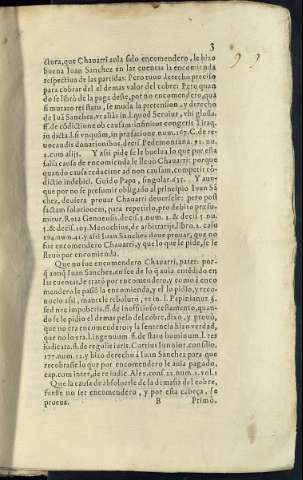 3
ctura, que Chauarri auia sido encomendero, le hizo
buena Iuan Sanchez en las cuentas la encomienda
respectius de las partidas: Pero tuuo derecho preciso
para cobrar del el demas valor del cobre: Pero quan
do se librò de la paga deste, por no encomendero, qua
si mutato rei statu, se muda la pretension, y derecho
de Iuã Sanchez, vt aliàs in l. quod Seruius, vbi glossa,
ff. de cõdictione ob causam: infinitos congerit Tiraq.
in dicta l. si vnquàm, in præfatione num. 167. C. de re-
uocandis donationibus, decis. Pedemontana. 71. nu.
2. cum alijs. Y assi pide se le buelua lo que por esta
falsa causa de encomienda le lleuò Chauarri: porque
quando causa reducitur ad non causam, competit cõ-
dictio indebiti, Guido Papa, singular. Y aun-
que por no se presumir obligado al principio Iuan Sã
chez, deuiera prouar Chauarri deuersele: pero post
factam solutionem, para repetirlo, pro debito præsu-
mitur. Rota Genouensis. decis. 3. num. 2. & decis. 5. nu.
3. & decis. 103. Menochius, de arbitrarijs, libro 2. casu
num. 41. y assi Iuan Sanchez deue prouar, que no
fue encomendero Chauarri, y que lo que le pide, se le
lleuò por encomienda.
Que no fue encomendero Chauarri, patet: por-
q̃ aunq̃ Iuan Sanchez, en fee de lo q̃ auia entẽdido en
las cuentas, le tratò por encomendero, y como à enco
mendero le passò la encomienda, y el lo pidio, y reco-
nocio assi, manet le reboluto, vt in l. Papinianus §.
sed nec impuberis, ff. de inofficioso testamento, quan-
do se le pidio el demas peso del cobre, dixo, y prouò,
que no era encomendero: y la sentencia hizo verdad,
que no lo era. l. ingenuum ff. de statu hominum. l. res
iudicata. ff. de regulis iuris. Curtius Iunior, consilio,
177. num. 12. y hizo derecho à Iuan Sanchez para que
recobrasse lo que por encomendero le auia pagado,
cap. cum inter, de re iudic. Alex. cons. 22. num. 2. vol. 5
Que la causa de absoluerle de la demasia del cobre,
fuesse no ser encomendero, y por esta cabeça, se
prueua. B Primò,